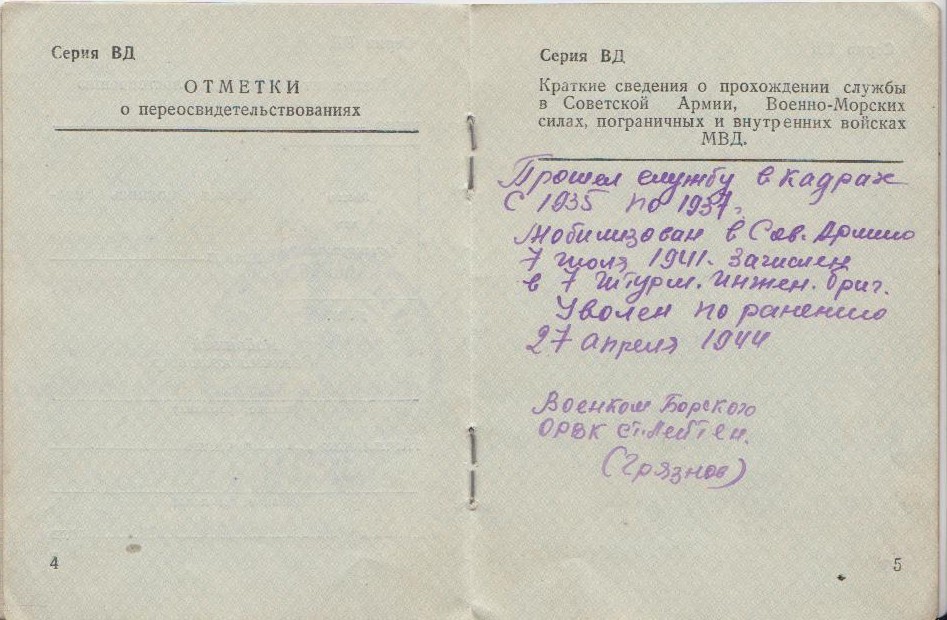 Серия ВД
ОТМЕТКИ
о переосвидетельствованиях
4
Серия ВД
Краткие сведения о прохождении службы
в Советской Армии, Военно-Морских
силах, пограничных и внутренних войсках
МВД.
Прошел службу в кадрах
с 1935 по 1937.
Мобилизован в Сов. Армию
7 июля 1941. Зачислен
в 7 штурм. инжен. бриг.
Уволен по ранению
27 апреля 1944
Военком Борского
ОРВК ст. лейтен.
(Грязнов)
5